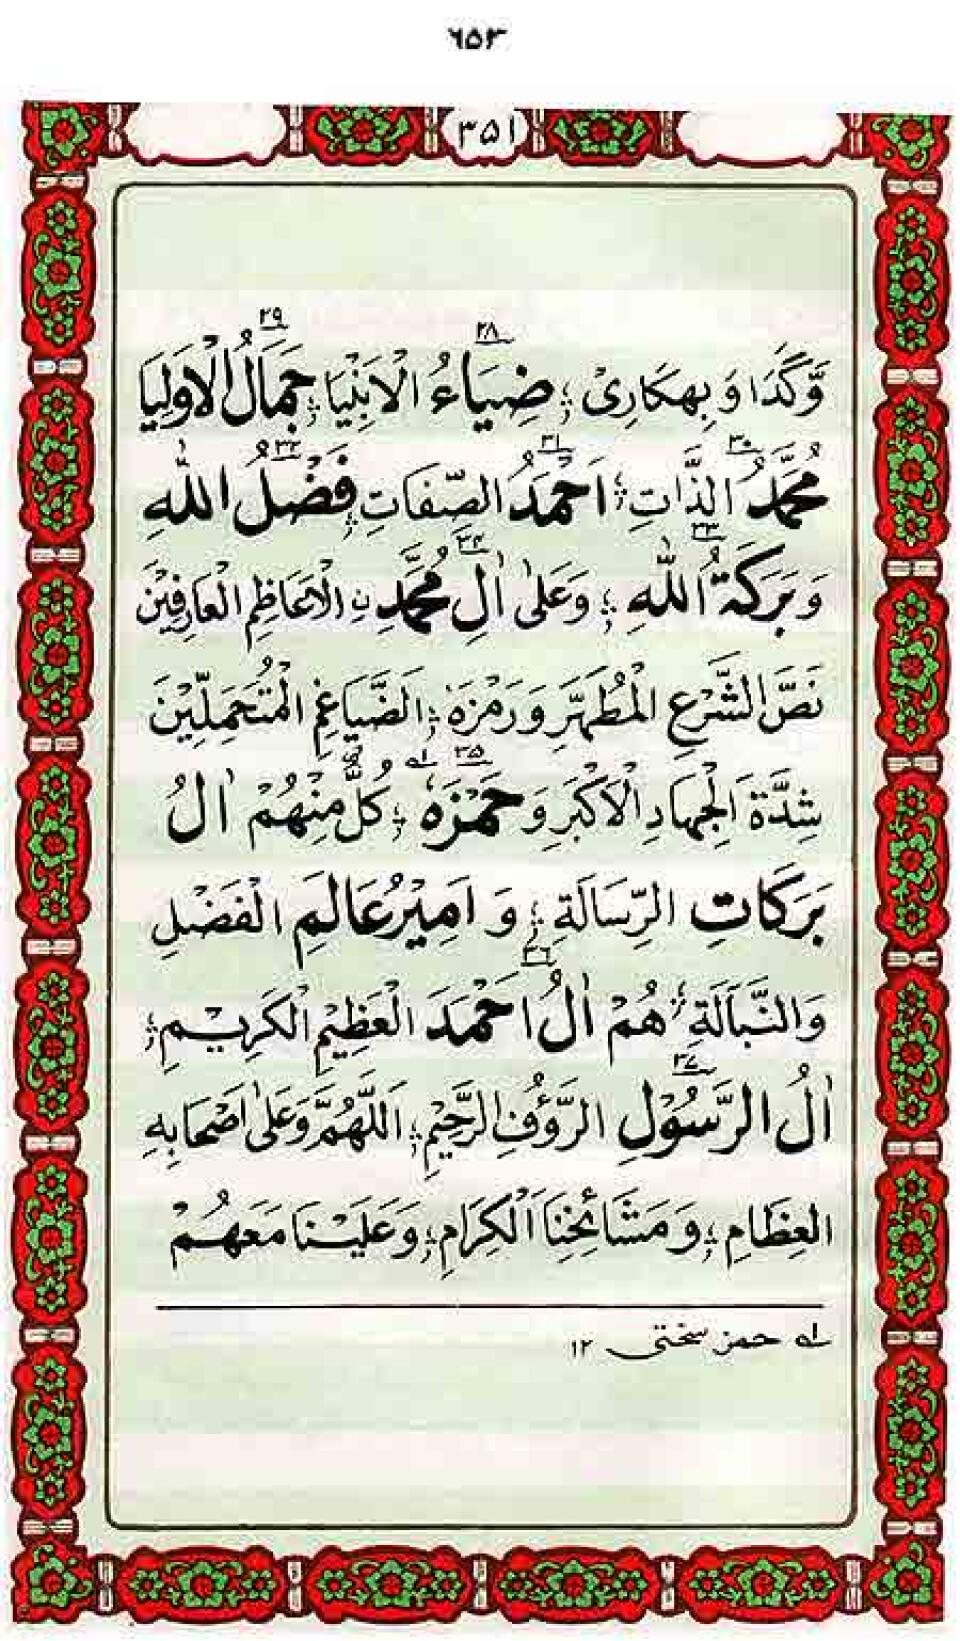 ٦٥٣
٣٥١
وَّگَدَا وَ بِهِكَارِیْ ؛ ضِیَاءُ الْاَنْبِیَا ؛ جَمَالُ الْاَوْلِیَا
٢٨ ٢٩
مُحَمَّدُ الذَّاتِ ؛ اَحْمَدُ الصِّفَاتِ ؛ فَضْلُ اللّٰهِ
٣٠ ٣١ ٣٢
وَ بَرَكَةُ اللّٰهِ ؛ وَعَلٰی اٰلِ مُحَمَّدِ نِ الْاَعَاظِمِ الْعَارِفِیْنَ
٣٣ ٣٤
نَصَّ الشَّرْعِ الْمُطَهَّرِ وَرَمْزَهٗ ؛ اَلضَّیَاغِمِ الْمُتَحَمِّلِیْنَ
شِدَّةَ الْجِهَادِ الْاَكْبَرِ وَ حَمْزَهٗ ؛ كُلٌّ مِنْهُمْ اٰلُ
٣٥ لہ
بَرَكَاتِ الرِّسَالَةِ ؛ وَ اَمِیْرُ عَالَمِ الْفَضْلِ
وَالنَّبَالَةِ ؛ هُمْ اٰلُ اَحْمَدَ الْعَظِیْمِ الْكَرِیْمِ ؛
٣٦
اٰلُ الرَّسُوْلِ الرَّؤُفِ الرَّحِیْمِ ؛ اَللّٰهُمَّ وَعَلٰی اَصْحَابِهِ
٣٧
الْعِظَامِ ؛ وَ مَشَائِخِنَا الْكِرَامِ ؛ وَعَلَیْنَا مَعَهُمْ
لہ حمز سختی ١٢